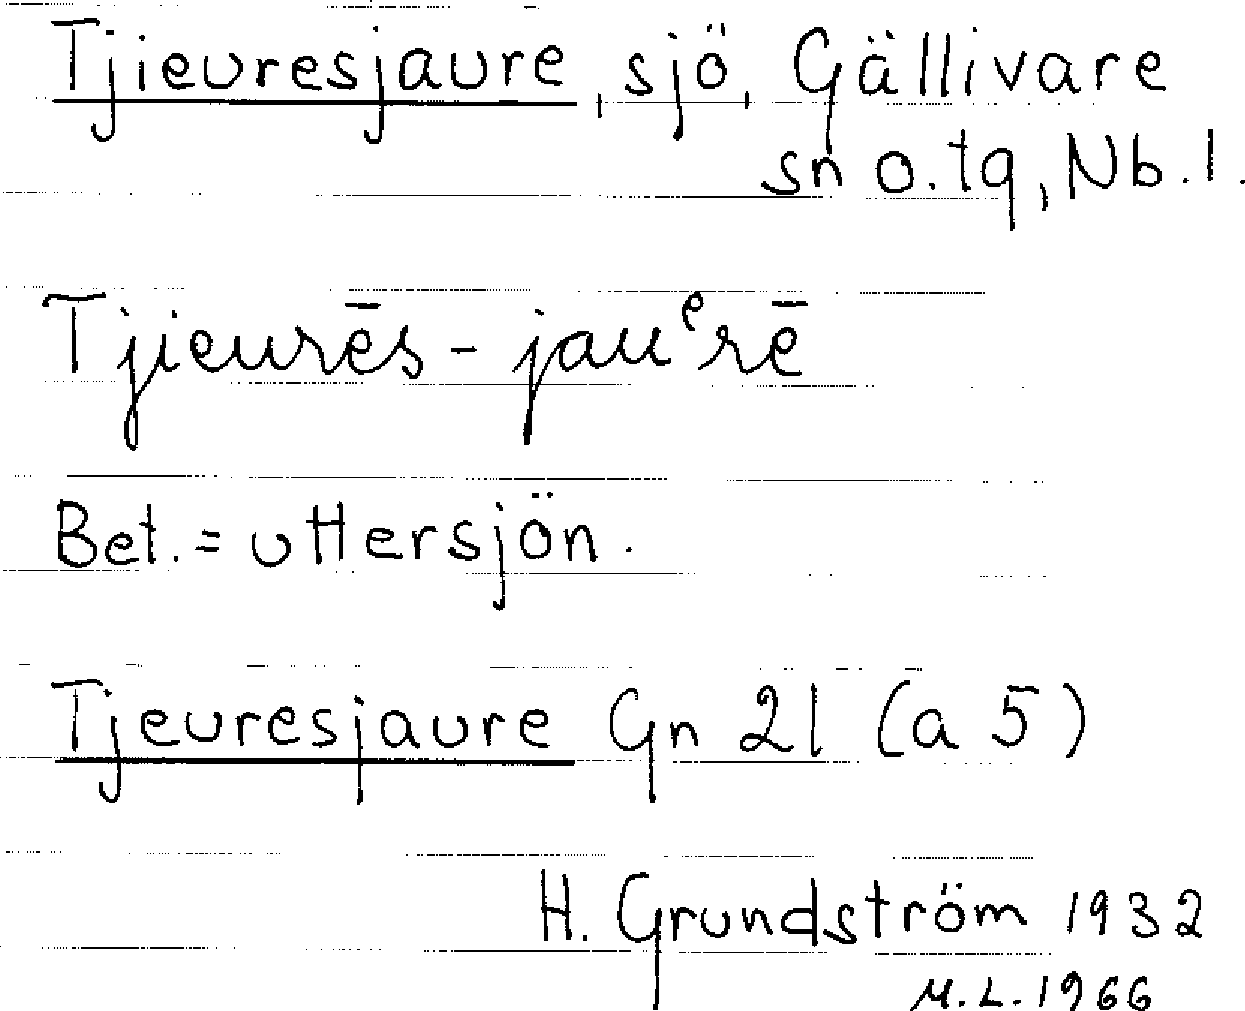 Tjieuresjaure, sjö, Gällivare
sn o. tg, Nb. l.
Tjieurēs-jauᵉrē
Bet. = uttersjön.
Tjeuresjaure Gn 21 (a 5)
H. Grundström 1932
M.L. 1966